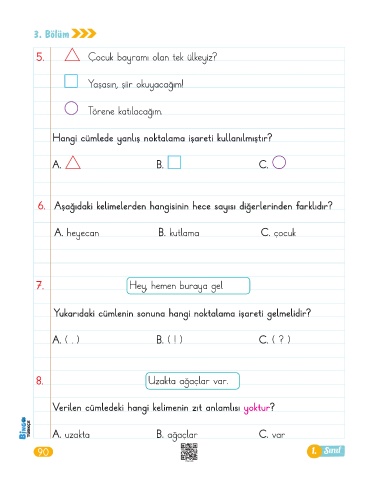 3. Bölüm
5. Çocuk bayramı olan tek ülkeyiz?
Yaşasın, şiir okuyacağım!
Törene katılacağım.
Hangi cümlede yanlış noktalama işareti kullanılmıştır?
A. B. C.
6. Aşağıdaki kelimelerden hangisinin hece sayısı diğerlerinden farklıdır?
A. heyecan B. kutlama C. çocuk
7. Hey, hemen buraya gel
Yukarıdaki cümlenin sonuna hangi noktalama işareti gelmelidir?
A. ( . ) B. ( ! ) C. ( ? )
8. Uzakta ağaçlar var.
Verilen cümledeki hangi kelimenin zıt anlamlısı yoktur?
A. uzakta B. ağaçlar C. var
BİNGO
TÜRKÇE
90
1. Sınıf